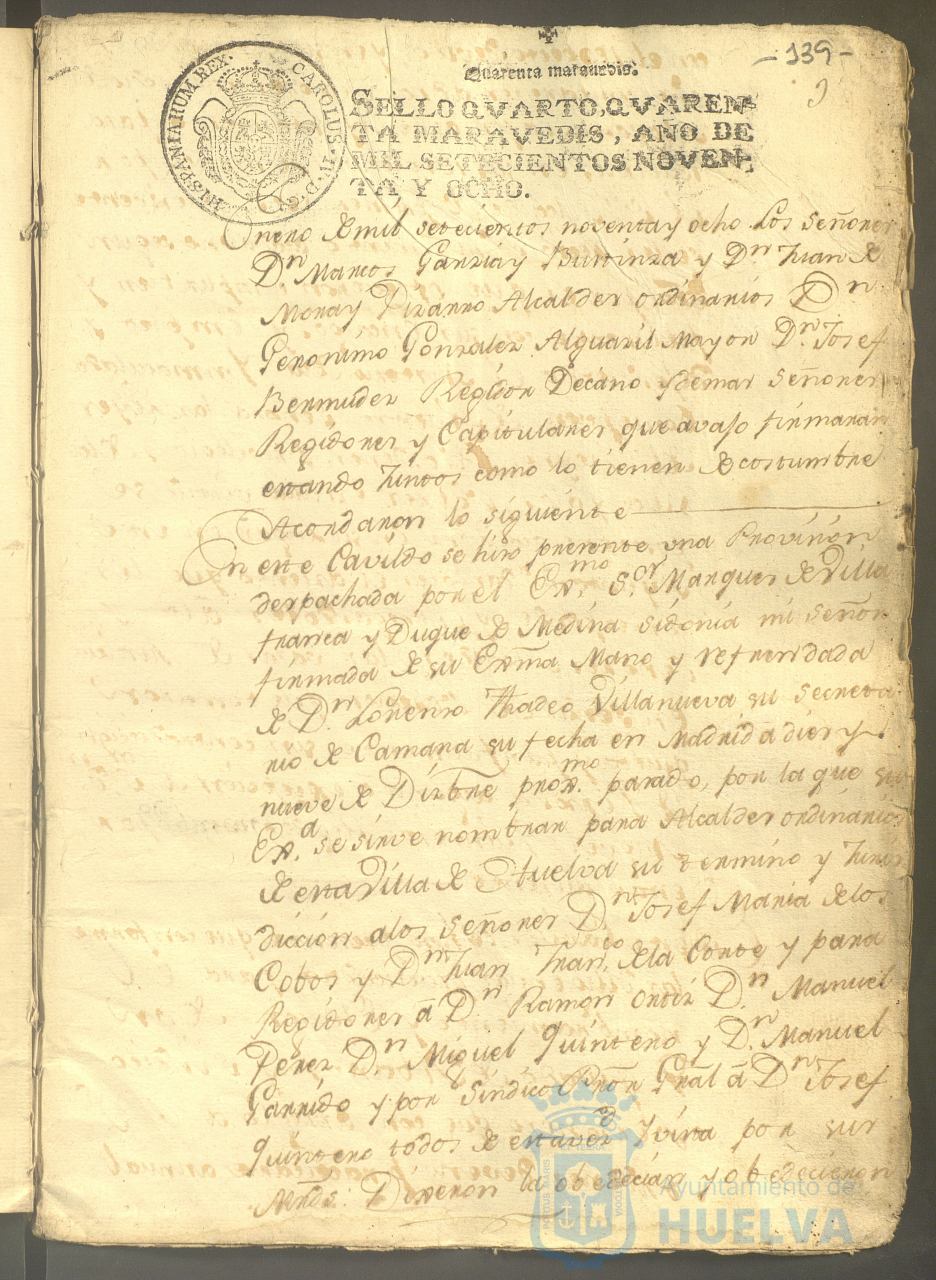 -139-
Quarenta maravedis.
SELLO QVARTO, QVAREN-
TA MARAVEDIS, AÑO DE
MIL SETECIENTOS NOVEN-
TA Y OCHO.
HISPANIARUM REX. CAROLUS. IV. D. G.
Enero de mil setecientos noventa y ocho Los Señores
Dn Marcos Garzia y Burrinza y Dn Juan de
Mora y Pizarro Alcaldes ordinarios Dn
Geronimo Gonzalez Alguazil Mayor Dn Josef
Bermudez Regidor Decano y demas Señores
Regidores y Capitulares que avajo firmaran
estando Juntos como lo tienen de costumbre
Acordaron lo siguiente
En este Cavildo se hizo presente una Provision
despachada por el Exmo Sor Marques de Villa
franca y Duque de Medina Sidonia mi Señor
firmada de su Exma Mano y refrendada
de Dn Lorenzo Thadeo Villanueva su Secreta
rio de Camara su fecha en Madrid a diez y
nueve de Dizbre proxmo pasado, por la que su
Exa se sirve nombrar para Alcaldes ordinarios
de esta Villa de Huelva su termino y Juris
diccion a los Señores Dn Josef Maria de los
Cobos y Dn Juan Franco de la Corte y para
Regidores á Dn Ramon Ortiz Dn Manuel
Perez Dn Miguel Quintero y Dn Manuel
Garrido y por Sindico Pror Gral á Dn Josef
Quintero todos de esta vezd Y vista por sus
Mrds. Dixeron la obedecian y obedecieron
Ayuntamiento de
HUELVA